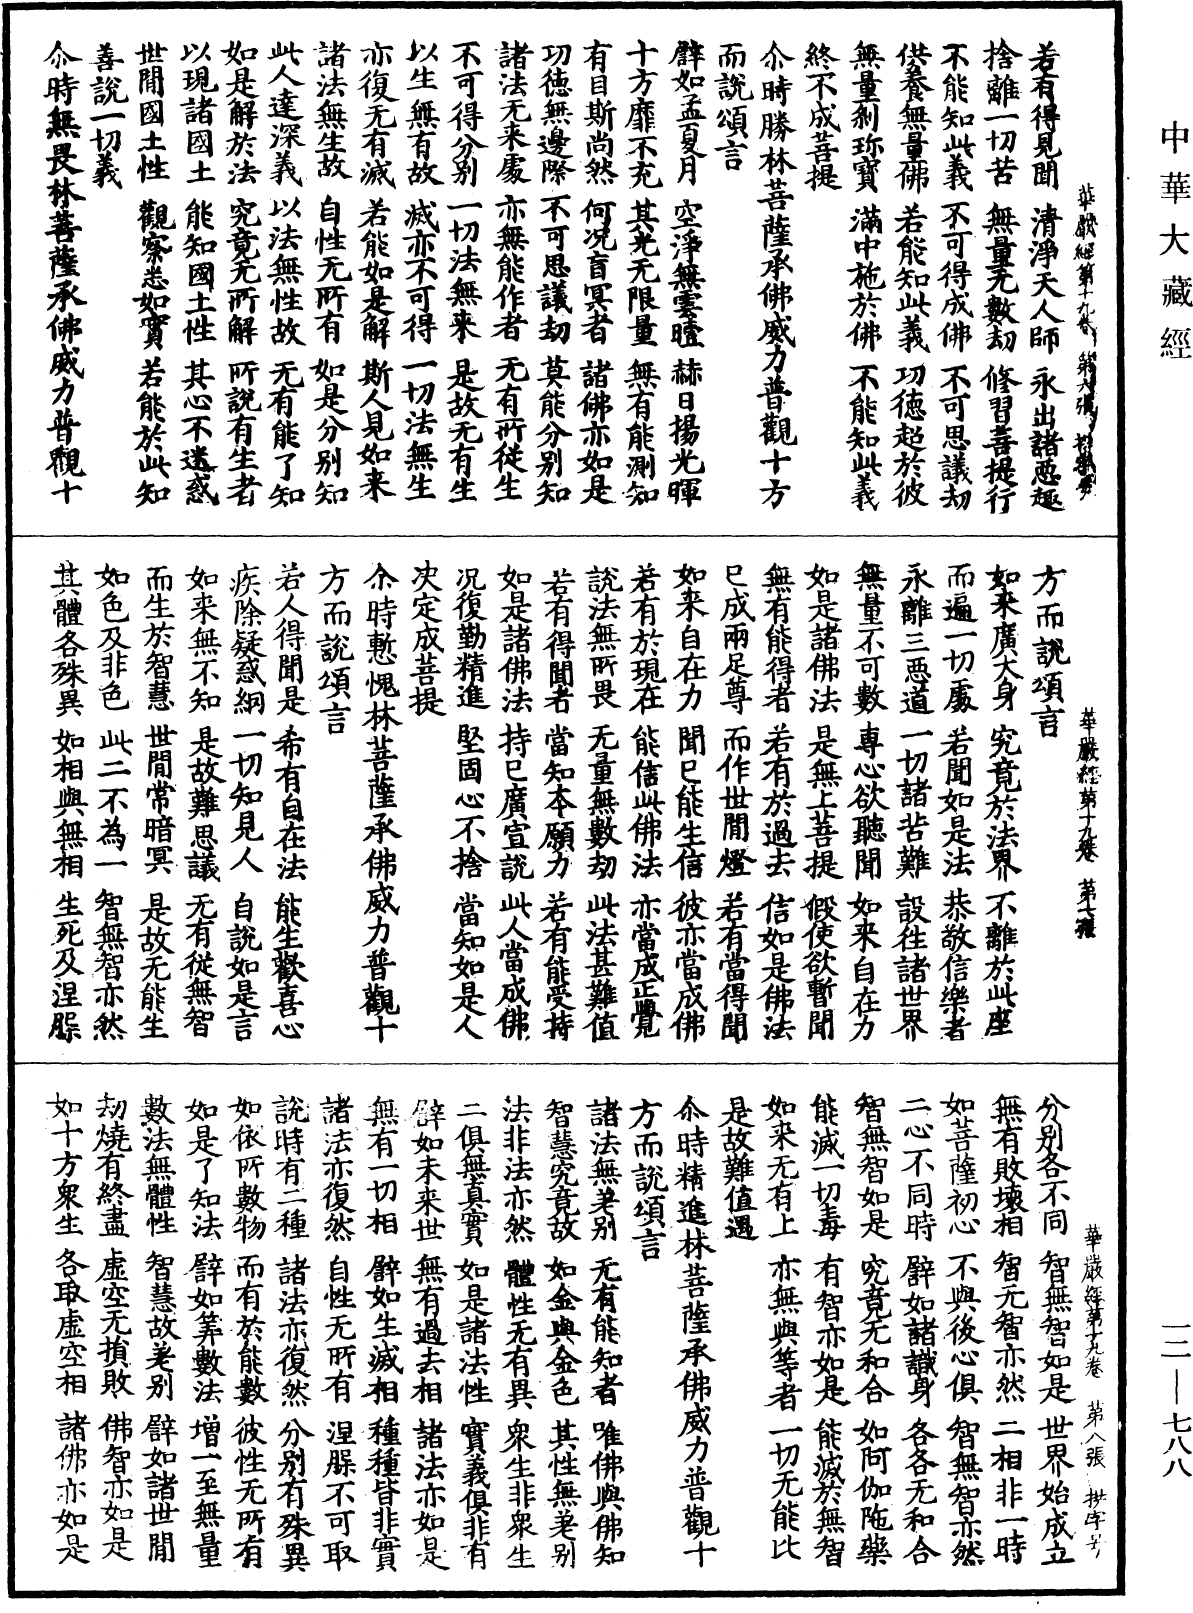 中華大藏經
一二—七八八
華嚴經第十九卷　第六張
若有得見聞　清淨天人師　永出諸惡趣
捨離一切苦　無量无數劫　修習菩提行
不能知此義　不可得成佛　不可思議劫
供養無量佛　若能知此義　功德超於彼
無量剎珎寶　滿中施於佛　不能知此義
終不成菩提
尒時勝林菩薩承佛威力普觀十方
而說頌言
譬如孟夏月　空淨無雲曀　赫日揚光暉
十方靡不充　其光无限量　無有能測知
有目斯尚然　何況盲冥者　諸佛亦如是
功德無邊際　不可思議劫　莫能分別知
諸法无来處　亦無能作者　无有所從生
不可得分別　一切法無来　是故无有生
以生無有故　滅亦不可得　一切法無生
亦復无有滅　若能如是解　斯人見如来
諸法無生故　自性无所有　如是分別知
此人達深義　以法無性故　无有能了知
如是解於法　究竟无所解　所說有生者
以現諸國土　能知國土性　其心不迷惑
世間國土性　觀察悉如實　若能於此知
善說一切義
尒時無畏林菩薩承佛威力普觀十
華嚴經第十九卷　第七張
方而說頌言
如来廣大身　究竟於法界　不離於此座
而遍一切處　若聞如是法　恭敬信樂者
永離三惡道　一切諸苦難　設往諸世界
無量不可數　專心欲聽聞　如来自在力
如是諸佛法　是無上菩提　假使欲暫聞
無有能得者　若有於過去　信如是佛法
已成兩足尊　而作世間燈　若有當得聞
如来自在力　聞已能生信　彼亦當成佛
若有於現在　能信此佛法　亦當成正覺
說法無所畏　无量無數劫　此法甚難值
若有得聞者　當知本願力　若有能受持
如是諸佛法　持已廣宣說　此人當成佛
況復勤精進　堅固心不捨　當知如是人
决定成菩提
尒時慙愧林菩薩承佛威力普觀十
方而說頌言
若人得聞是　希有自在法　能生歡喜心
疾除疑惑網　一切知見人　自說如是言
如来無不知　是故難思議　无有從無智
而生於智慧　世間常暗冥　是故无能生
如色及非色　此二不為一　智無智亦然
其體各殊異　如相與無相　生死及涅槃
華嚴經第十九卷　第八張
分別各不同　智無智如是　世界始成立
無有敗壞相　智无智亦然　二相非一時
如菩薩初心　不與後心俱　智無智亦然
二心不同時　譬如諸識身　各各无和合
智無智如是　究竟无和合　如阿伽陁藥
能滅一切毒　有智亦如是　能滅於無智
如来无有上　亦無與等者　一切无能比
是故難值遇
尒時精進林菩薩承佛威力普觀十
方而說頌言
諸法無差別　无有能知者　唯佛與佛知
智慧究竟故　如金與金色　其性無差別
法非法亦然　體性无有異　衆生非衆生
二俱無真實　如是諸法性　實義俱非有
譬如未来世　無有過去相　諸法亦如是
無有一切相　譬如生滅相　種種皆非實
諸法亦復然　自性无所有　涅槃不可取
說時有二種　諸法亦復然　分別有殊異
如依所數物　而有於能數　彼性无所有
如是了知法　譬如筭數法　增一至無量
數法無體性　智慧故差別　譬如諸世間
劫燒有終盡　虛空无損敗　佛智亦如是
如十方衆生　各取虛空相　諸佛亦如是